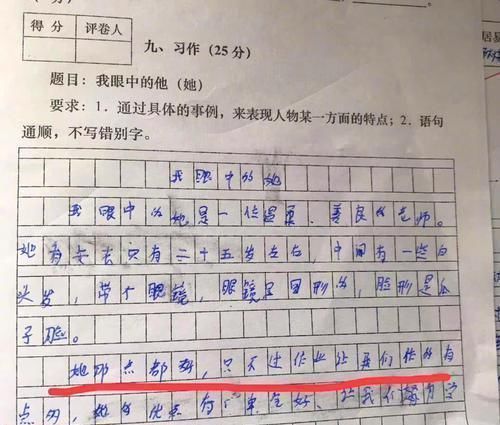 得分 评卷人
九、习作（25分）
题目：我眼中的他（她）
要求：1．通过具体的事例，来表现人物某一方面的特点；2．语句
通顺，不写错别字。
我眼中的她
我眼中的她是一位温柔、善良的老师。
她看上去只有二十五岁左右，中间有一些白
头发，带个眼镜，眼镜是圆形的，脸形是瓜
子脸。
她哪点都好，只不过作业让我们作的有
点多，她的优点有